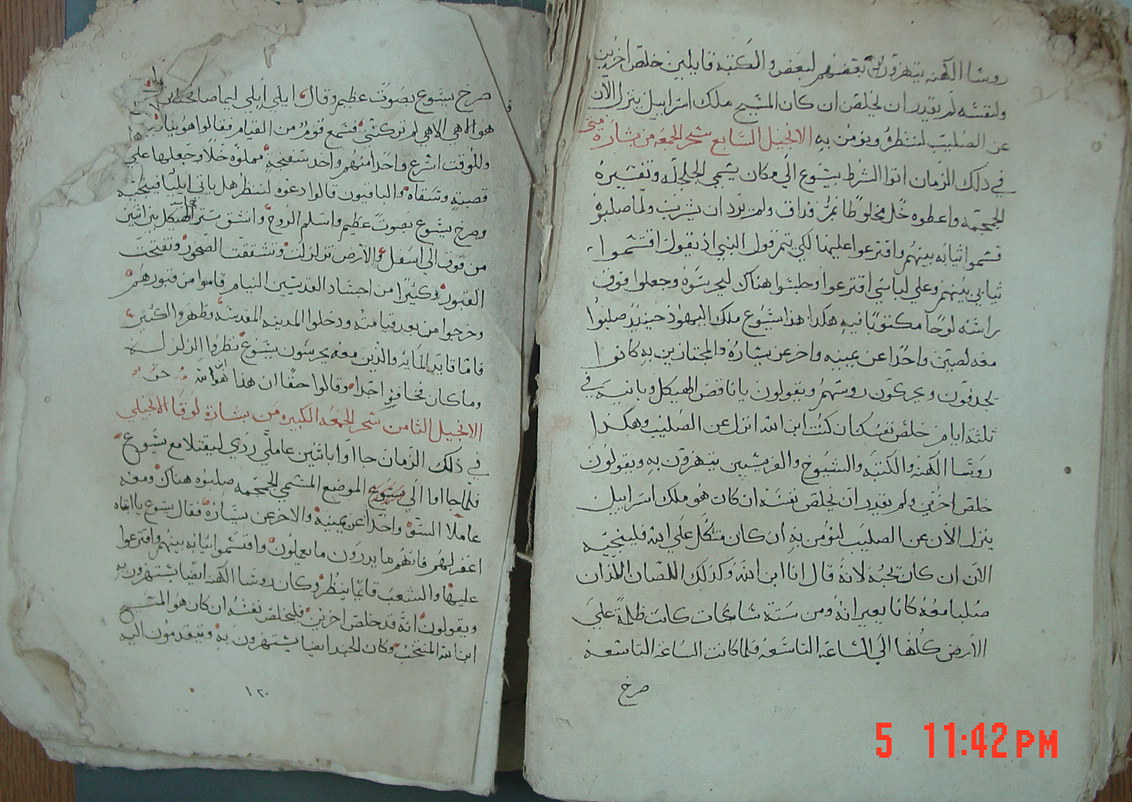 روسا الكهنه يتهزون بعضهم لبعض والكتبه قايلين خلص اخرين
ولنفسه لم يقدر ان يخلص ان كان المسيح ملك اسراييل ينزل الان
عن الصليب لننظر ونومن به الانجيل السابع سحر الجمعه من بشارة متى
في ذلك الزمان اتوا الشرط بيسوع الى مكان يسمى الجلجله وتفسيره
الجمجمه واعطوه خل مخلوطا بمر فذاق ولم يرد ان يشرب ولما صلبوه
قسموا ثيابه بينهم واقترعوا عليها لكي يتم قول النبي اذ يقول اقتسموا
ثيابي بينهم وعلى لباسي اقترعوا وجلسوا هناك ليحرسوه وجعلوا فوق
راسه لوحا مكتوبا فيه هكدا هذا يسوع ملك اليهود حينيذ صلبوا
معه لصين واحدا عن يمينه واخر عن يساره والمجتازين به كانوا
يجدفون ويحركون روسهم ويقولون يا ناقض الهيكل وبانيه في
تلتة ايام خلص نفسك ان كنت ابن الله انزل عن الصليب وهكدا
روسا الكهنه والكتبه والشيوخ والفريسيين يتهزون به ويقولون
خلص اخرين ولم يقدر ان يخلص نفسه ان كان هو ملك اسراييل
ينزل الان عن الصليب لنومن به ان كان متكل على الله فلينجيه
الان ان كان يحبه لانه قال انا ابن الله وكذلك اللصان اللذان
صلبا معه كانا يعيرانه ومن ستة ساعات كانت ظلمة على
الارض كلها الى الساعة التاسعه فلما كانت الساعة التاسعه
صرخ
صرخ يسوع بصوت عظيم وقال ايلي ايلي لما صاختاني
هو الهي الاهي لم تركتني فسمع قوم من القيام فقالوا هو ينادي
وللوقت اسرع واحد منهم واخد سفنجه مملوه خلا وجعلها على
قصبة وسقاه والباقون قالوا دعوه لننظر هل ياتي ايليا فينجيه
وصرخ يسوع بصوت عظيم واسلم الروح وانشق ستر الهيكل باتنين
من فوق الى اسفل والارض تزلزلت وتشققت الصخور وتفتحت
القبور وكثيرا من اجساد القديسين النيام قاموا من قبورهم
وخرجوا من بعد قيامته ودخلوا المدينه المقدسه وظهروا لكثير
فاما قايد المايه والذين معه يحرسون يسوع نظروا الزلزله
وما كان فخافوا جدا وقالوا حقا ان هذا هو ابن الله
الانجيل الثامن سحر الجمعه الكبيره من بشارة لوقا الانجيلي
في ذلك الزمان جااوا باتنين عاملي ردي ليقتلا مع يسوع
فلما جااوا الى الموضع المسمى الجمجمه صلبوه هناك ومعه
عاملا السوء واحدا عن يمينه والاخر عن يساره فقال يسوع يا ابتاه
اغفر لهم فانهم ما يدرون ما يعملون واقتسموا ثيابه بينهم واقترعوا
عليها والشعب قايما ينظر وكان روسا الكهنه ايضا يستهزون به
ويقولون انه قد خلص اخرين فليخلص نفسه ان كان هو المسيح
ابن الله المنتخب وكان الجند ايضا يستهزون به ويتقدمون اليه
١٢٠
5 11:42PM